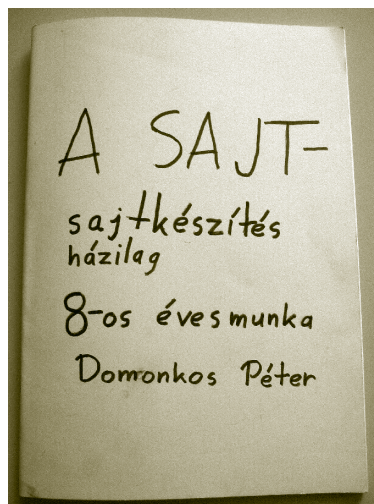 A SAJT-
sajtkészítés
házilag
8-os évesmunka
Domonkos Péter